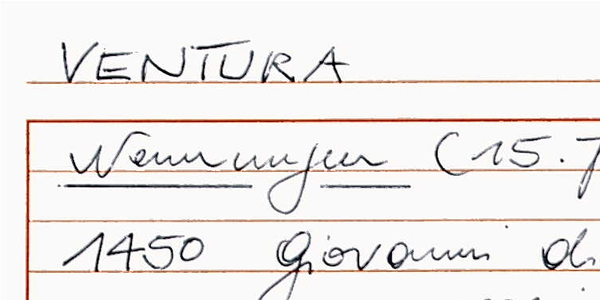 VENTURA
Nennungen (15.J
1450 Giovanni di